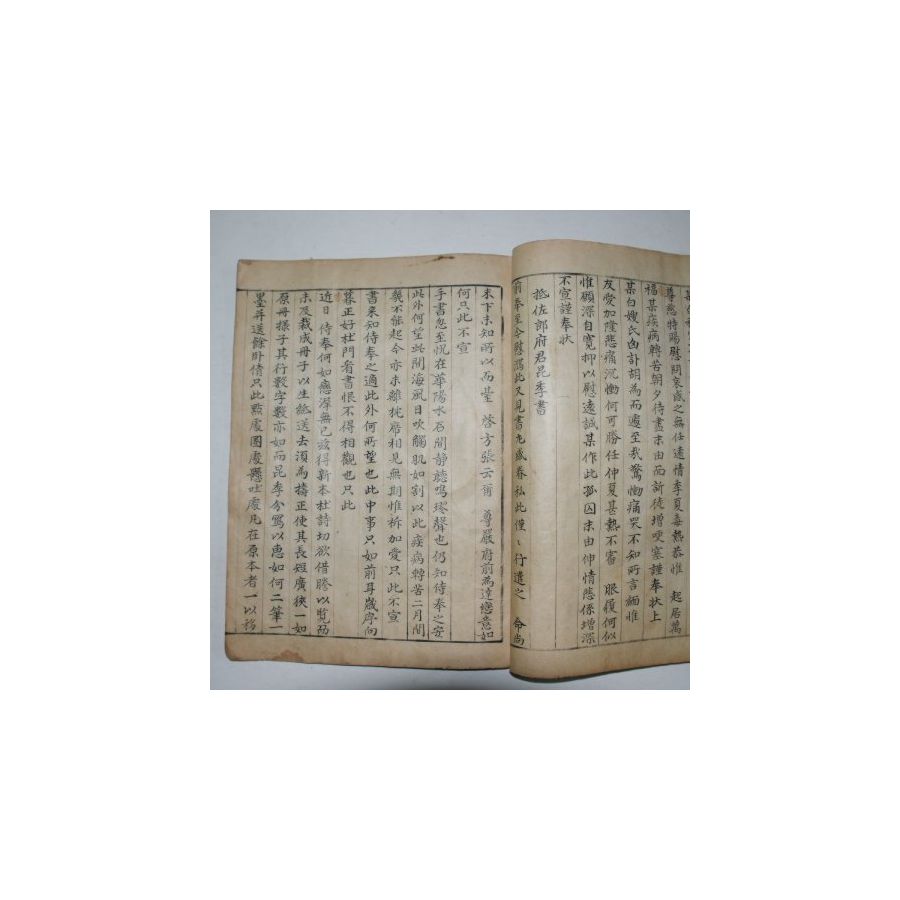 尊慈特賜慰問哀感之無任遠情季夏毒熱恭惟 起居萬
福某疾病轉苦朝夕待盡末由面訴徒增哽塞謹奉狀上
某白嫂氏凶訃胡為而遽至我驚慟痛哭不知所言緬惟
友愛加隆悲痛沉慟何可勝任仲夏甚熱不審 眼履何似
惟願深自寬抑以慰遠誠某作此 囚末由伸情悲係增深
不宣謹奉狀
抵佐郎府君昆季書
前奉至今慰 此又見書尤感眷私此僅〻行遣之 命尚
未下未知所以而臺 啓方張云爾 尊嚴府前為達戀意如
何只此不宣
手書忽至怳在華陽水石間靜聽鳴琢聲也仍知侍奉之安
此外何望此間海風日吹觸肌如割以此疾病轉苦二月間
幾不能起今亦未離枕席相見無期惟祈加愛只此不宣
書來知侍奉之適此外何所望也此中事只如前耳歲序向
暮正好杜門看書恨不得相觀也只此
近日侍奉何如戀渾無已茲得新本杜詩切欲借謄以覽 
未及裁成冊子以生紙送去須為擣正使其長短廣狹一如
原冊樣子其行數字數亦如而昆季分寫以惠如何二筆一
墨并送餘卧倩只此點處圈處懸吐處凡在原本者一以移